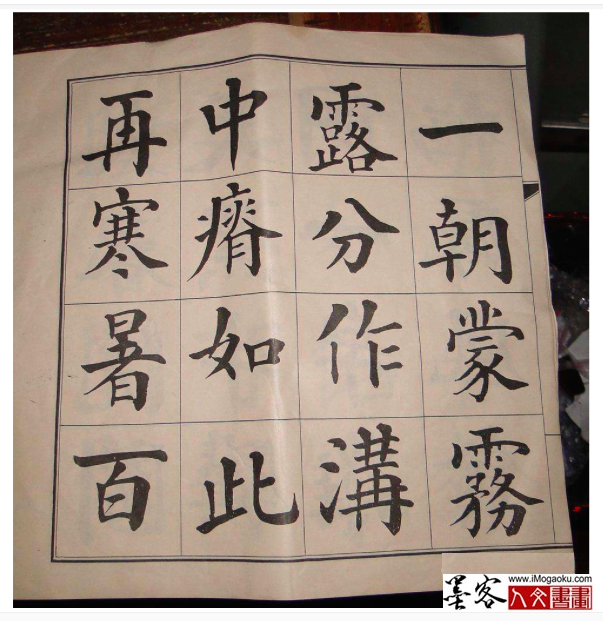 一朝蒙霧
露分作溝
中瘠如此
再寒暑百
墨客
www.iMogaoku.com
人文書畫